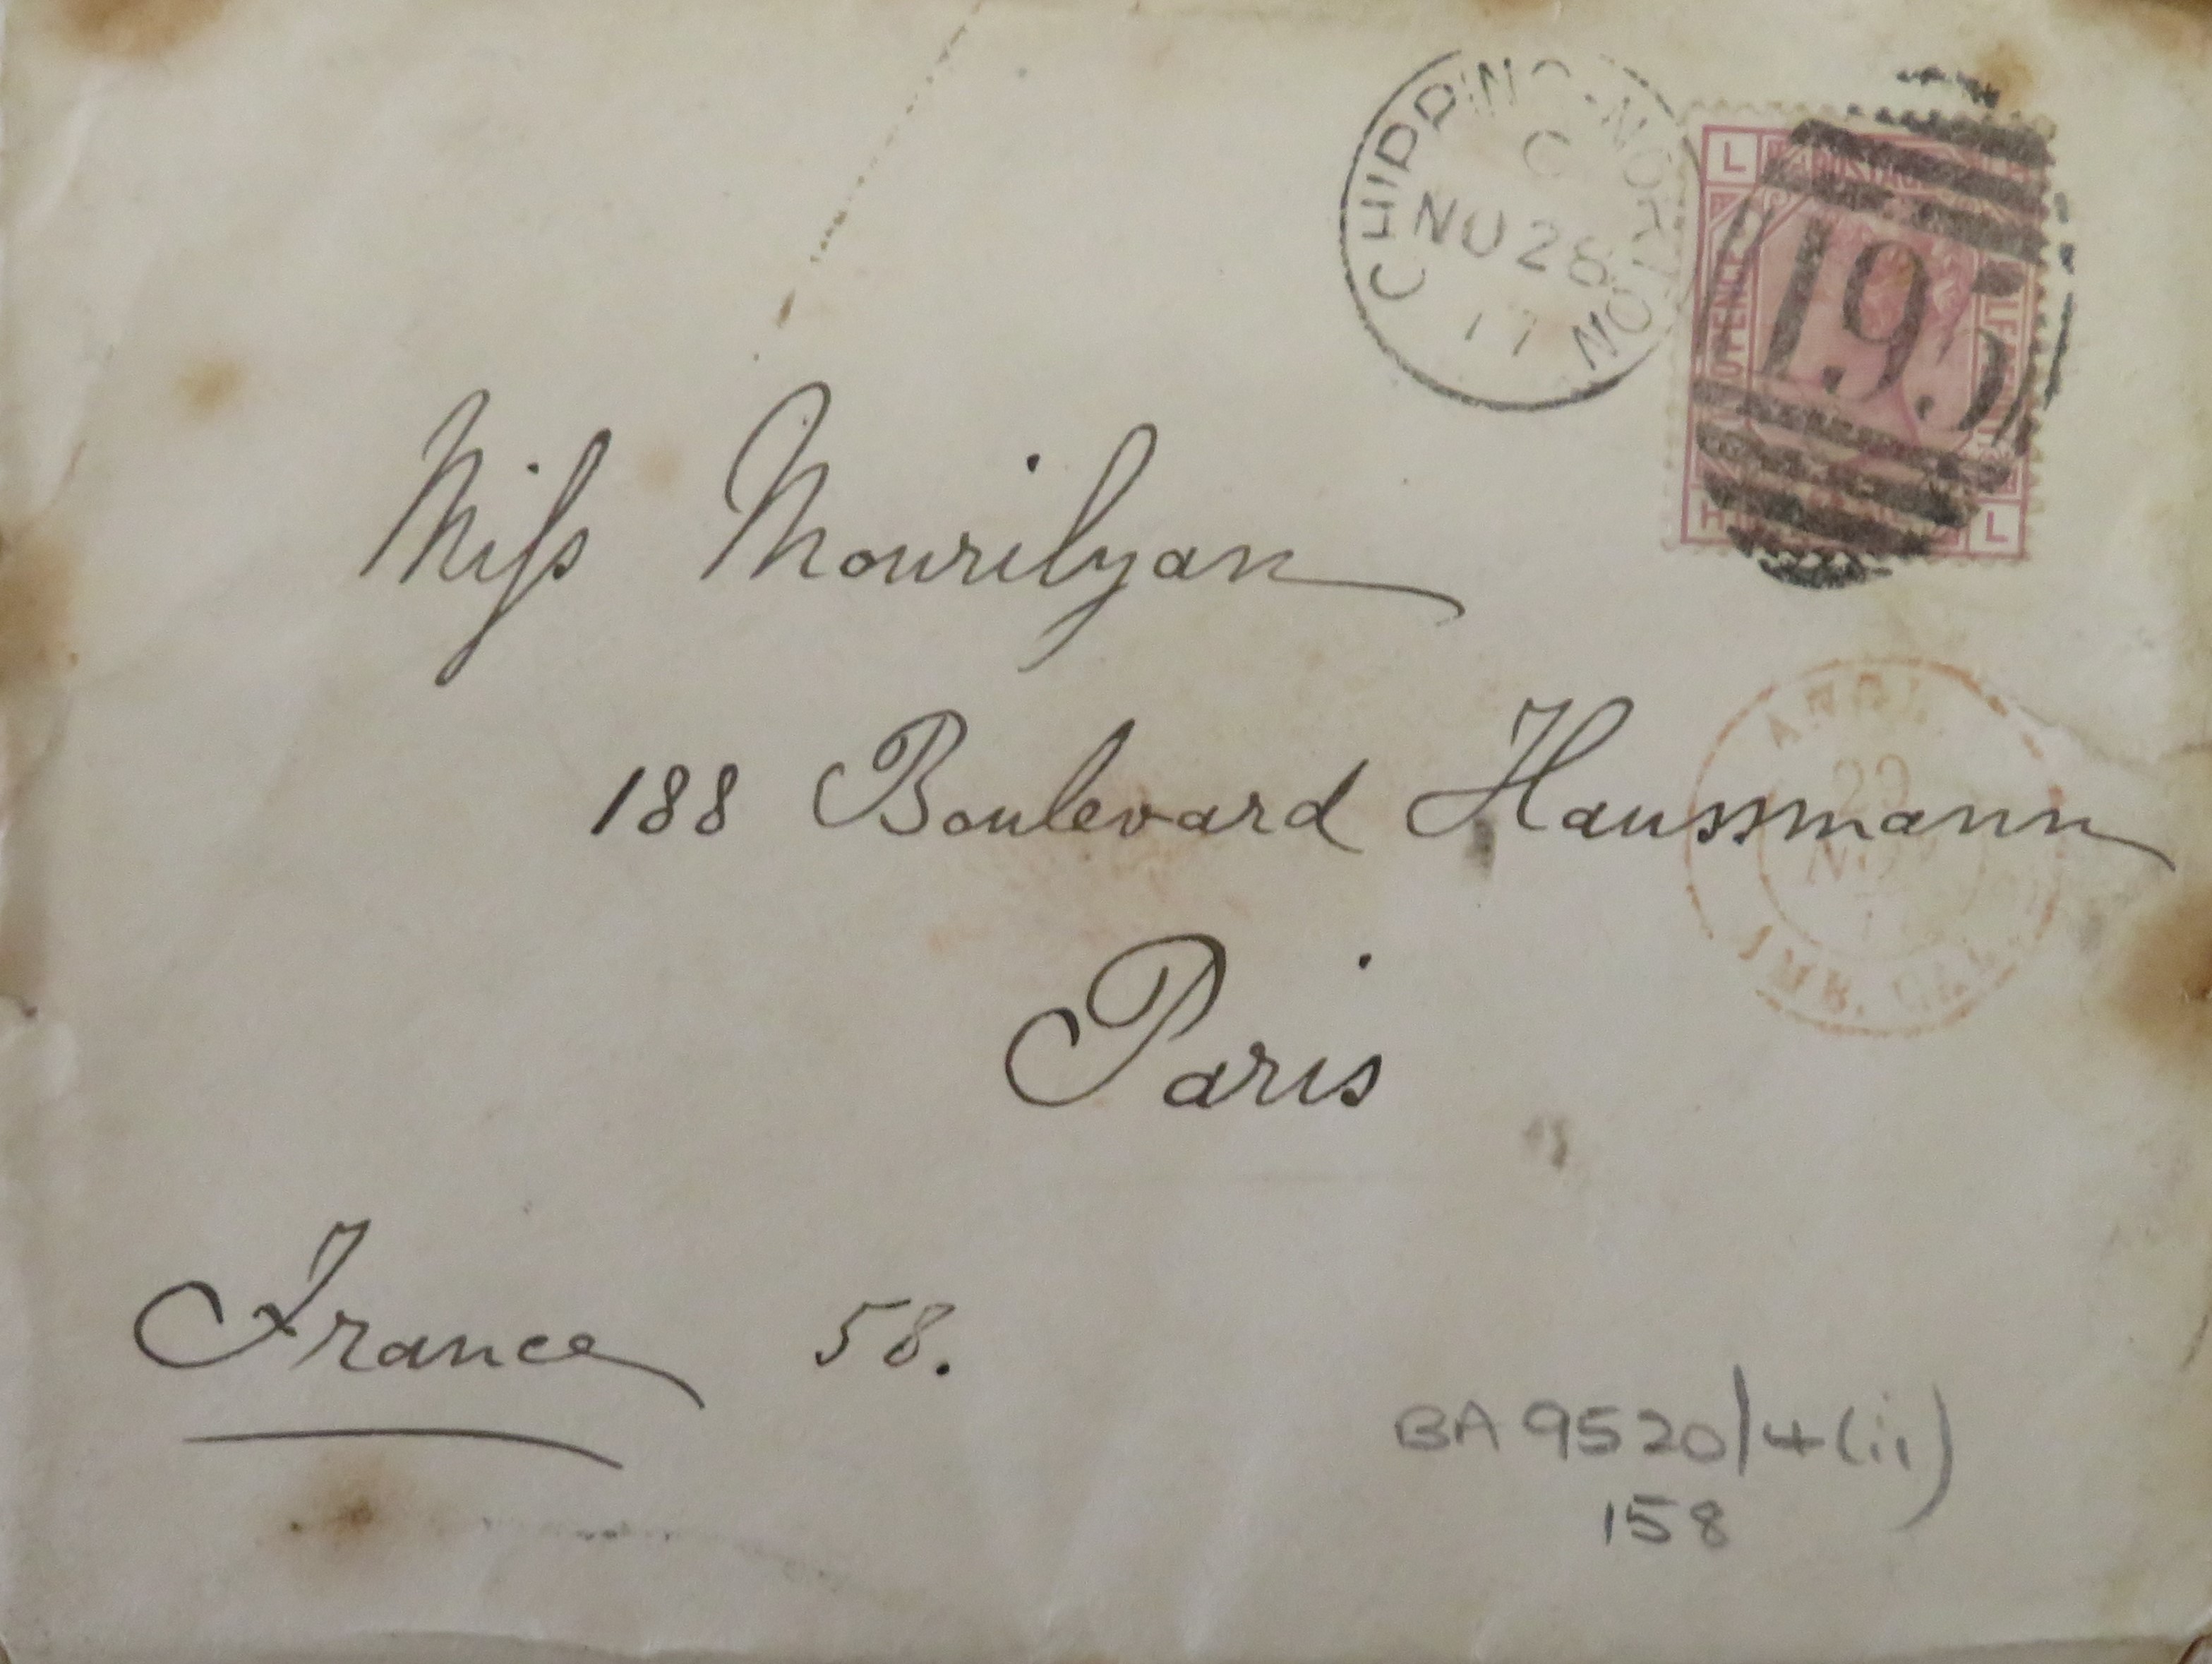 CHIPPING-NORTON
C
NO 28
77
L
195
L
Miss Mourilyan
188 Boulevard Haussmann
Paris
France 58.
ANGL.
29
NOV
AMB. CAL.
BA 9520/4(ii)
158